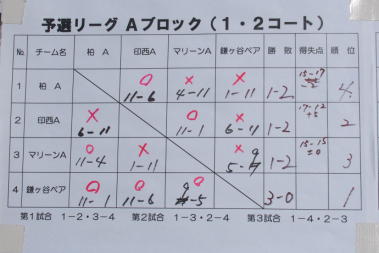 予選リーグ Aブロック（1・2コート）
№ チーム名 柏 A 印西A マリーンA 鎌ヶ谷ベア 勝 敗 得失点 順 位
1 柏 A ○ 11-6 × 4-11 × 1-11 1-2 15-17 -2 4
2 印西A × 6-11 ○ 11-1 × 6-11 1-2 17-12 +5 2
3 マリーンA ○ 11-4 × 1-11 × 5-9 1-2 15-15 ±0 3
4 鎌ヶ谷ベア ○ 11-1 ○ 11-6 ○ 9-5 3-0 1
第1試合 1－2・3－4 第2試合 1－3・2－4 第3試合 1－4・2－3